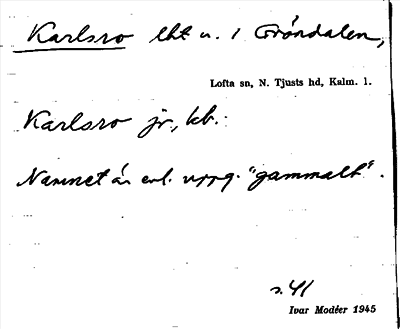 Karlsro lht u. 1 Gröndalen,
Lofta sn, N. Tjusts hd, Kalm. l.
Karlsro jr, kb.:
Namnet är enl. uppg. "gammalt".
s. 41
Ivar Modéer 1945